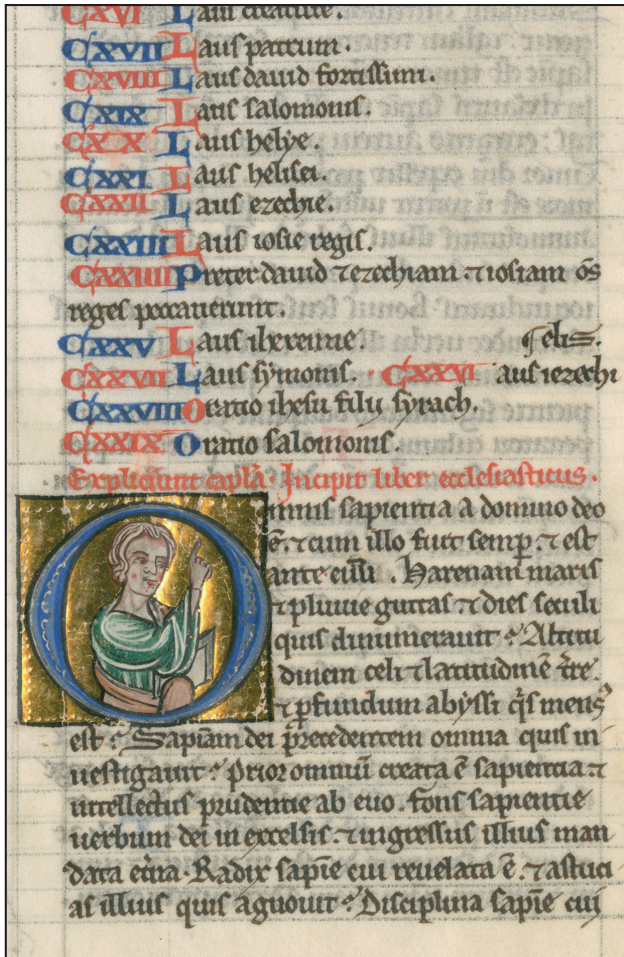 CXVI Laus creature.
CXVII Laus patrum.
CXVIII Laus dauid fortissimi.
CXIX Laus salomonis.
CXX Laus helye.
CXXI Laus helisei.
CXXII Laus ezechie.
CXXIII Laus iosie regis.
CXXIIII Preter dauid ⁊ ezechiam. ⁊ iosiam om̄s
reges peccauerunt.
CXXV Laus iheremie. ¶ elis.
CXXVII Laus symonis. CXXVI aus iezechi
CXXVIII Oratio ihesu filij syrach.
CXXIX Oratio salomonis.
Expliciunt capl̄a. Incipit liber ecclesiasticus.
Omnis sapientia a domino deo
ē. ⁊ cum illo fuit semp̄. ⁊ est
ante euū. Harenam maris
⁊ pluuie guttas ⁊ dies seculi
quis dinumerauit? Altitu
dinem celi ⁊ latitudinē t̄re.
⁊ ꝓfundum abyssi q̄s mensꝰ
est? Sapiam̄ dei p̄cedentem omnia quis in
uestigauit? Prior omniū creata ē sapientia ⁊
intellectus prudentie ab euo. fons sapientie
uerbum dei in excelsis. ⁊ ingressus illius man
data et̄na. Radix sapīe cui reuelata ē. ⁊ astuci
as illius quis agnouit? Disciplina sapīe cui